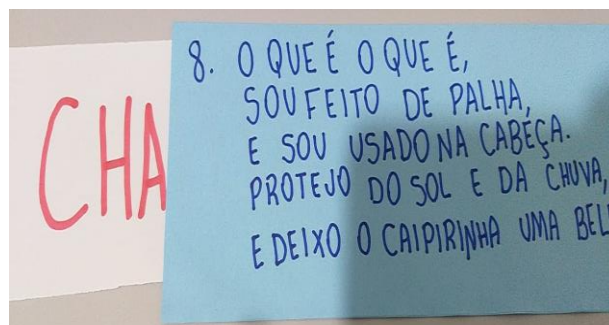 CHA
8. O QUE É O QUE É,
SOU FEITO DE PALHA,
E SOU USADO NA CABEÇA.
PROTEJO DO SOL E DA CHUVA,
E DEIXO O CAIPIRINHA UMA BEL